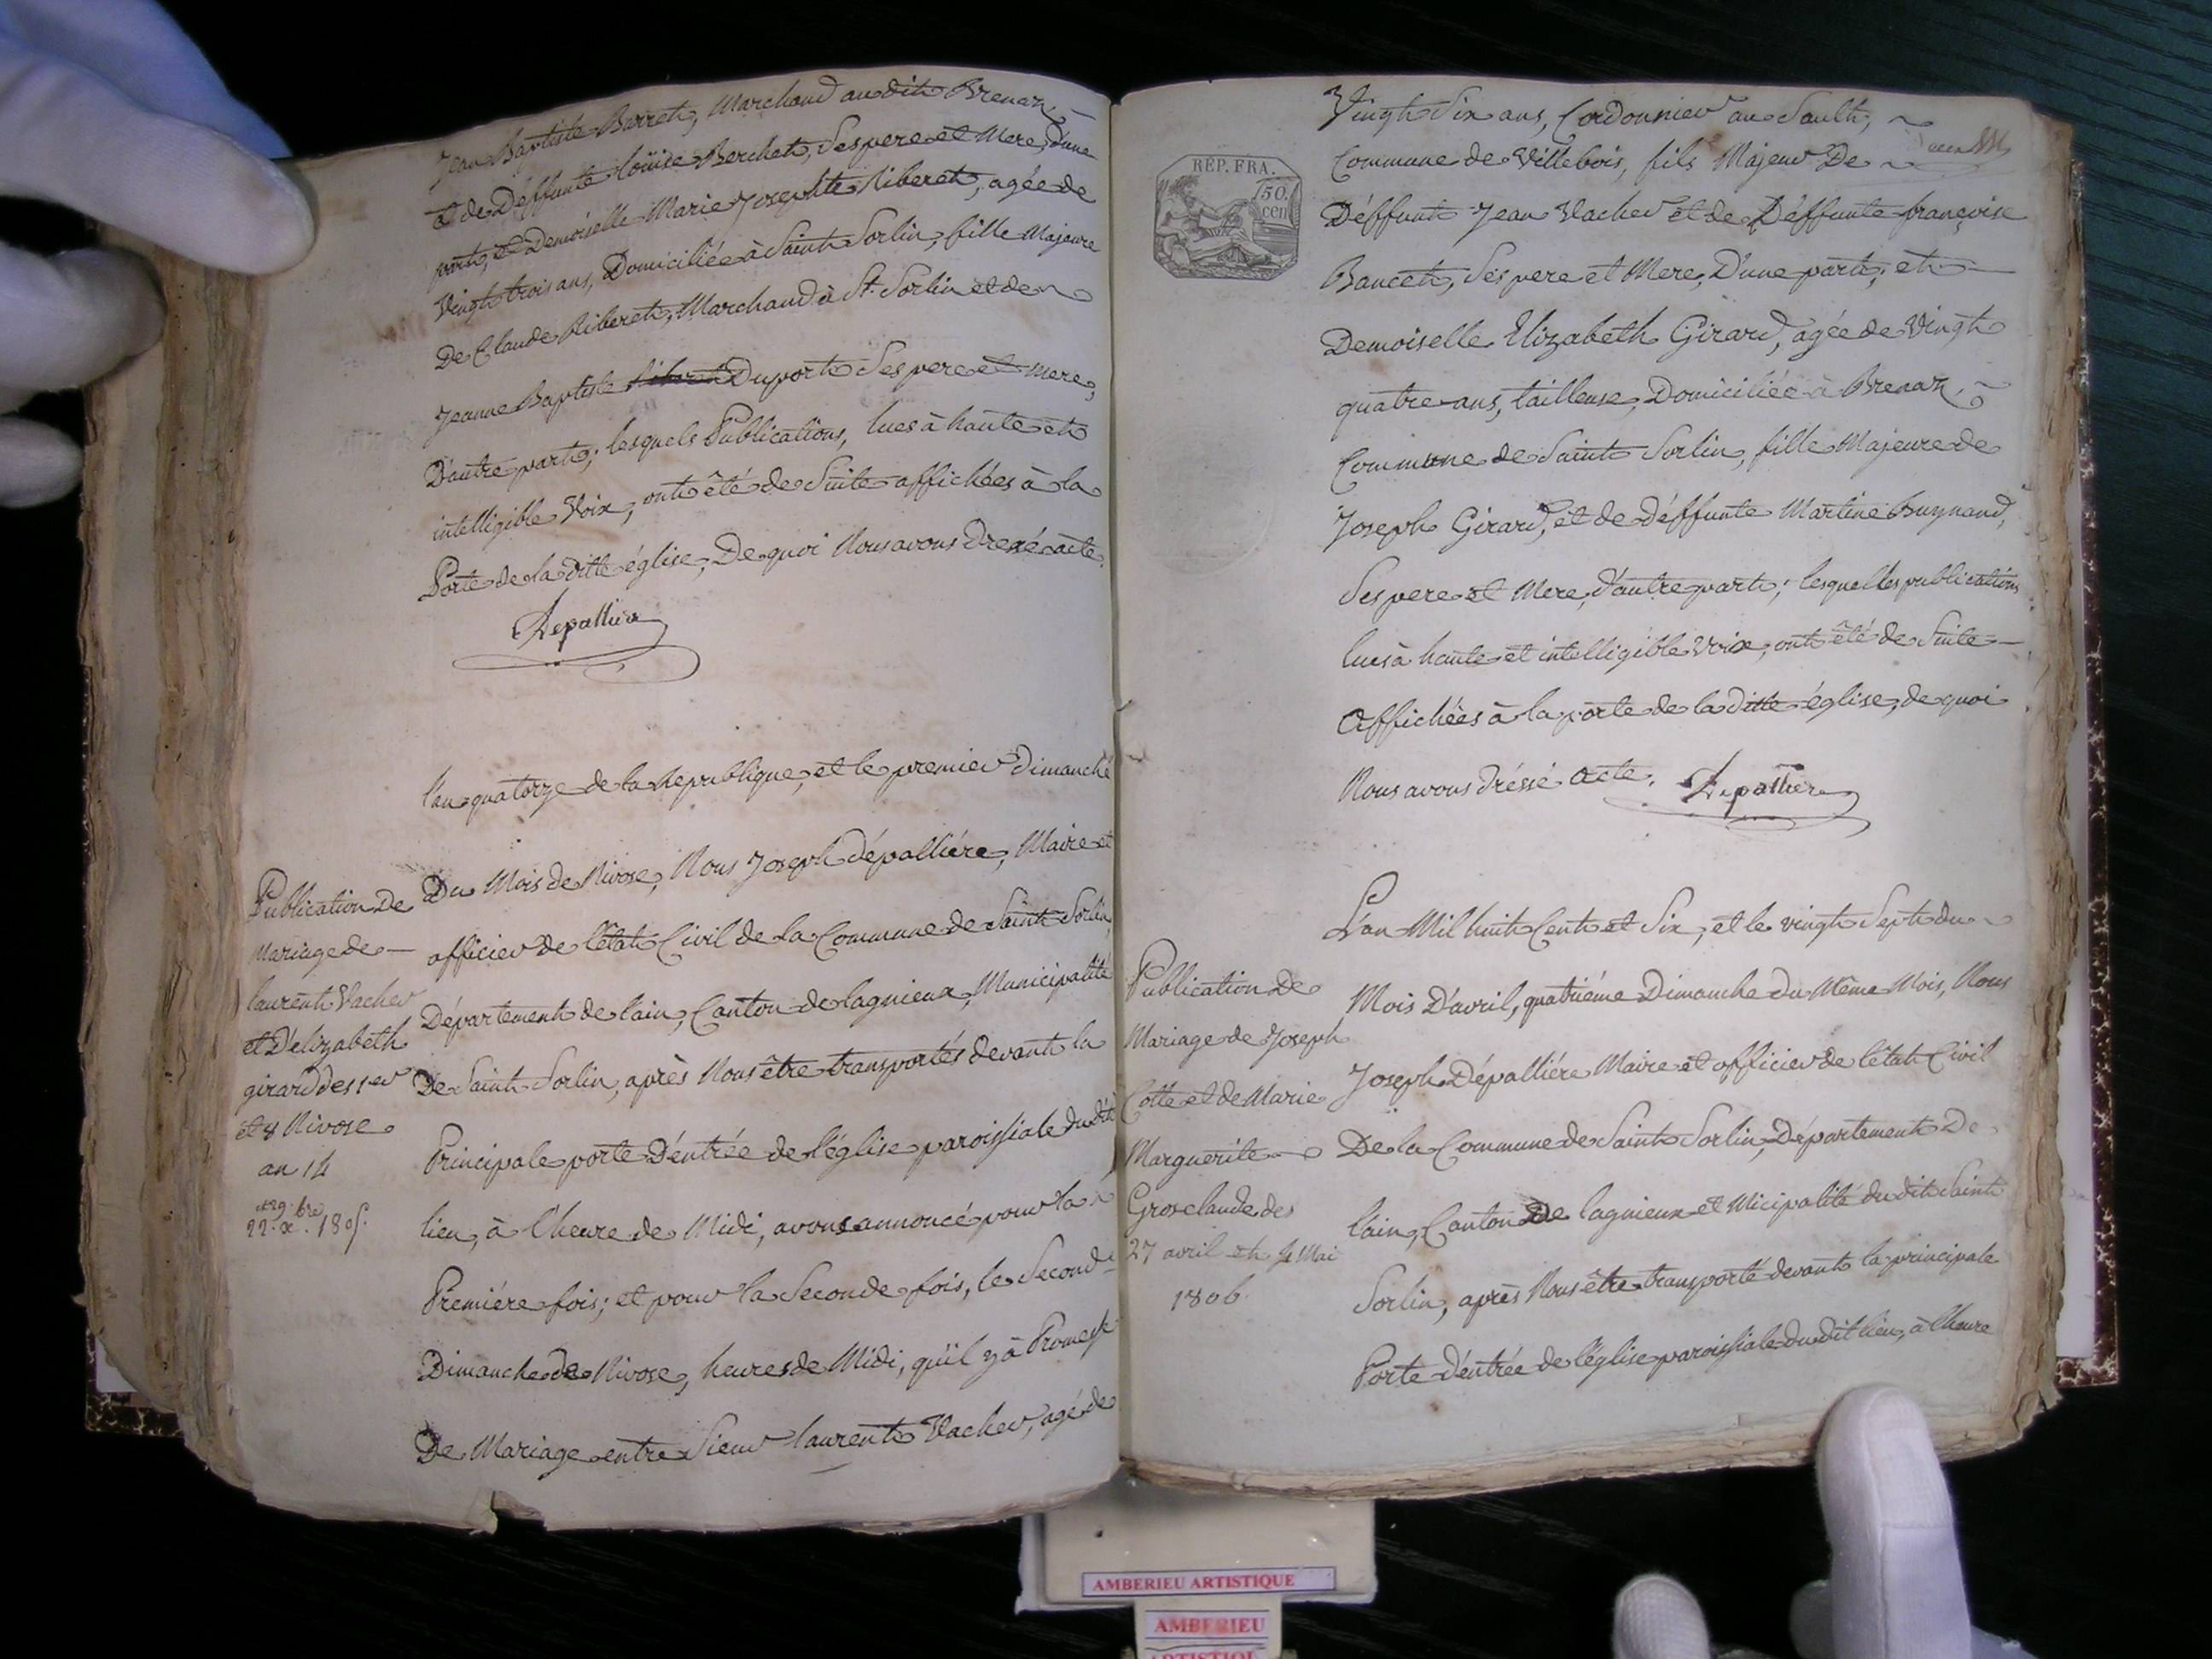 Jean Baptiste Barret, Marchand au dit Brenaz
et de Deffunte Louise Berchet, Ses pere et Mere, d'une
part, et Demoiselle Marie Josephte Riberet, agée de
Vingt trois ans, Domiciliée à Saint Sorlin, fille Majeure
De Claude Riberet, Marchand à St. Sorlin et de
Jeanne Baptiste Duport Ses pere et mere,
D'autre part; lesquels Publications, lues à haute et
intelligible Voix, ont été de Suite affichées à la
Porte de la ditte église, De quoi Nous avons Dressé acte.
Depallier
l'an quatorze de la Republique, et le premier Dimanche
Du Mois de Nivose, Nous Joseph dépalliére, Maire et
officier de l'état Civil de la Commune de Saint Sorlin,
Département de l'ain, Canton de lagnieux, Municipalité
De Saint Sorlin, après Nous être transportés devant la
Principale porte D'entrée de l'église paroissiale du dit
lieu, à l'heure de Midi, avons annoncé pour la
Premiére fois; et pour la Seconde fois, le Second
Dimanche de Nivose, heures de Midi, qu'il y à Promesse
De Mariage entre Sieur laurent Vacher, agé de
Publication De
Mariage de
laurent Vacher
et D'elizabeth
girard des 1er
et 8 Nivose
an 14
22. x. 1805.
REP. FRA.
50
cen
Vingt Six ans, Cordonnier au Sault,
Commune de Villebois, fils Majeur De
Déffunt Jean Vacher et de Déffunte françoise
Bancet, Ses pere et Mere, D'une part, et
Demoiselle Elizabeth Girard, agée de Vingt
quatre ans, tailleuse, Domiciliée à Brenaz,
Commune de Saint Sorlin, fille Majeure de
Joseph Girard, et de déffunte Martine Buynand,
Ses pere et Mere, d'autre part; lesquelles publications
lues à haute et intelligible Voix, ont été de Suite
Affichées à la porte de la ditte église, de quoi
Nous avons dréssé acte. Depallier
L'an Mil huit Cent et Six, et le vingt Sept du
Mois D'avril, quatriéme Dimanche du Même Mois, Nous
Joseph Dépalliére Maire et officier de l'état Civil
De la Commune de Saint Sorlin, Département De
l'ain, Canton De lagnieux et Micipalité du dit Saint
Sorlin, après Nous être transporté devant la principale
Porte d'entrée de l'église paroissiale du dit lieu, à l'heure
Publication De
Mariage de Joseph
Cotte et de Marie
Marguerite
Grosclaude des
27 avril et 4 Mai
1806.
AMBERIEU ARTISTIQUE
AMBERIEU
ARTISTIQUE